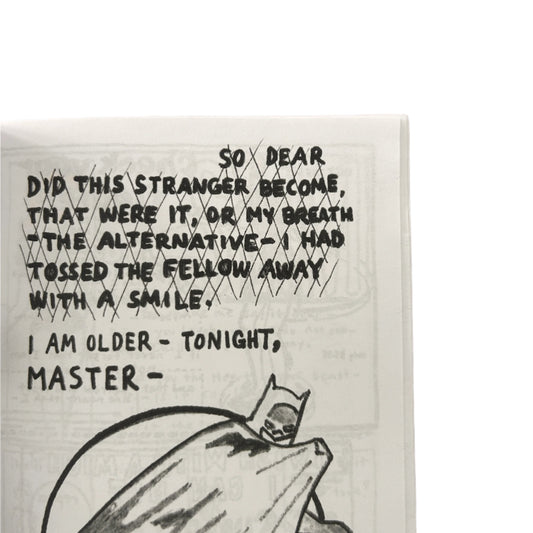 SO DEAR
DID THIS STRANGER BECOME,
THAT WERE IT, OR MY BREATH
-THE ALTERNATIVE- I HAD
TOSSED THE FELLOW AWAY
WITH A SMILE.
I AM OLDER - TONIGHT,
MASTER -